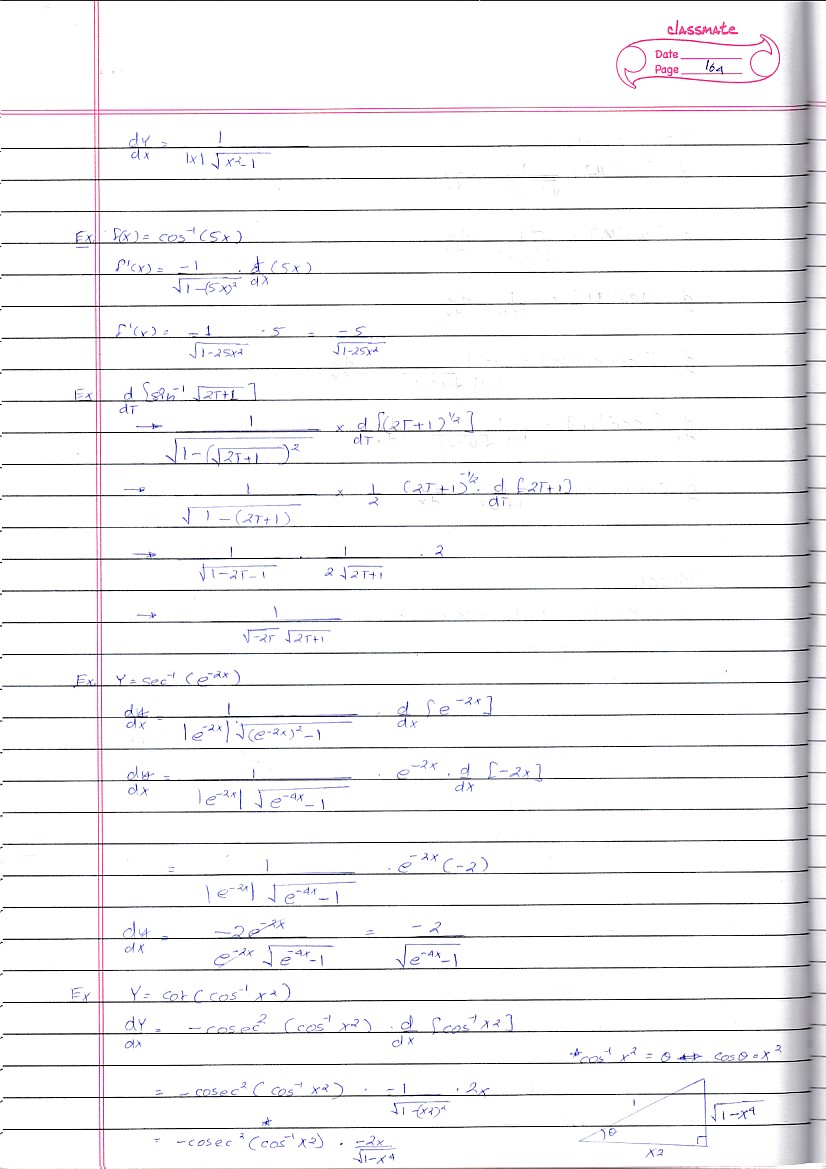 classmate
Date
Page 164
dy/dx = 1/(|x| √(x²-1))
Ex f(x) = cos⁻¹(5x)
f'(x) = -1/√(1-(5x)²) · d/dx (5x)
f'(x) = -1/√(1-25x²) · 5 = -5/√(1-25x²)
Ex d/dT [sin⁻¹ √(2T+1)]
→ 1/√(1-(√(2T+1))²) × d/dT [(2T+1)^½]
→ 1/√(1-(2T+1)) × 1/2 (2T+1)^-½ · d/dT [2T+1]
→ 1/√(1-2T-1) · 1/(2√(2T+1)) · 2
→ 1/(√(-2T) √(2T+1))
Ex Y = sec⁻¹(e^-2x)
dy/dx = 1/(|e^-2x| √((e^-2x)²-1)) · d/dx [e^-2x]
dy/dx = 1/(|e^-2x| √(e^-4x-1)) · e^-2x · d/dx [-2x]
= 1/(|e^-2x| √(e^-4x-1)) · e^-2x (-2)
dy/dx = -2e^-2x/(e^-2x √(e^-4x-1)) = -2/√(e^-4x-1)
Ex Y = cot(cos⁻¹ x²)
dy/dx = -cosec² (cos⁻¹ x²) · d/dx [cos⁻¹ x²]
*cos⁻¹ x² = θ ↔ cosθ = x²
= -cosec² (cos⁻¹ x²) · -1/√(1-(x²)²) · 2x
1
√(1-x⁴)
θ
x²
= -cosec² (cos⁻¹ x²)* · -2x/√(1-x⁴)